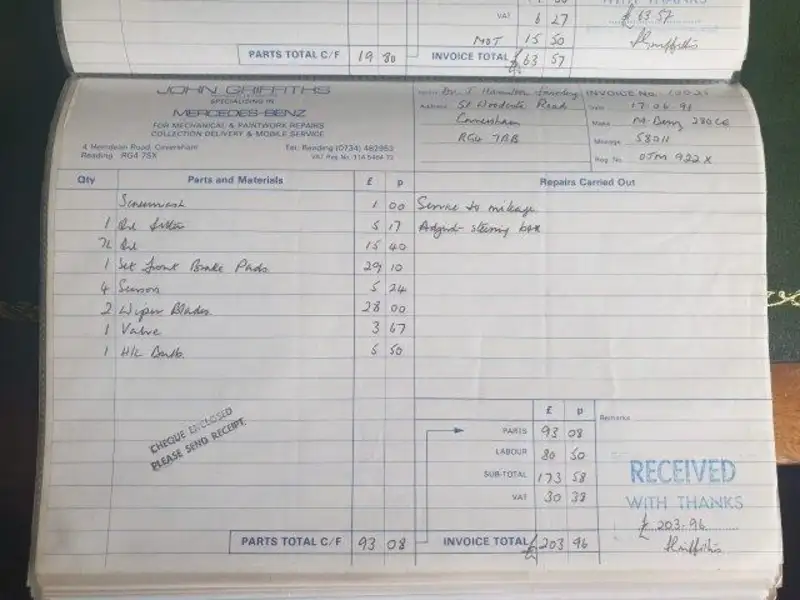 VAT 6 27
£63.57
MOT 15 50
PARTS TOTAL C/F 19 80
INVOICE TOTAL £63 57
JOHN GRIFFITHS
SPECIALISING IN
MERCEDES-BENZ
FOR MECHANICAL & PAINTWORK REPAIRS
COLLECTION DELIVERY & MOBILE SERVICE
4 Marsdean Road, Caversham
Reading RG4 7SX
Tel. Reading (0734) 462952
VAT Reg No.
Dr. J Hamilton
INVOICE No.
Address 51 Woodcote Road
Caversham
RG4 7BB
Date 17.06.91
Make M. Benz 280CE
Mileage 58011
Reg. No. OJM 922X
Qty Parts and Materials £ p Repairs Carried Out
Screenwash 1 00 Service to mileage
1 Oil filter 5 17 Adjust steering box
7L Oil 15 40
1 Set front Brake Pads 29 10
4 Sensors 5 24
2 Wiper Blades 28 00
1 Valve 3 67
1 H/L Bulb 5 50
CHEQUE ENCLOSED
PLEASE SEND RECEIPT
£ p
Remarks
PARTS 93 08
LABOUR 80 50
SUB-TOTAL 173 58
VAT 30 38
RECEIVED
WITH THANKS
£ 203-96
PARTS TOTAL C/F 93 08
INVOICE TOTAL £203 96
JGriffiths